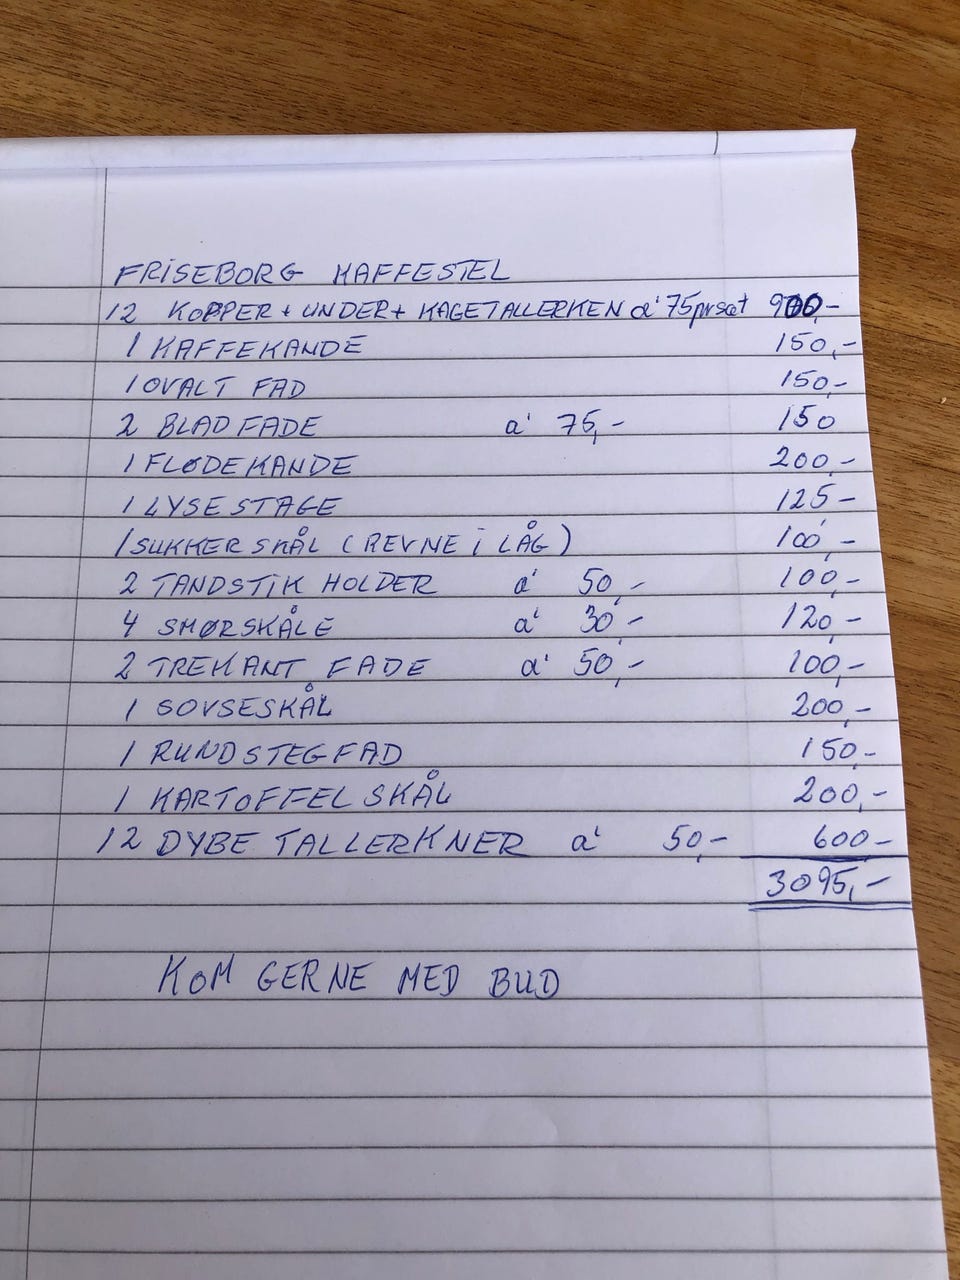 FRISEBORG KAFFESTEL
12 KOPPER + UNDER + KAGETALLERKEN a' 75 pr sæt 900,-
1 KAFFEKANDE 150,-
1 OVALT FAD 150,-
2 BLADFADE a' 75,- 150
1 FLØDEKANDE 200,-
1 LYSESTAGE 125-
1 SUKKERSKÅL (REVNE i LÅG) 100,-
2 TANDSTIK HOLDER a' 50,- 100,-
4 SMØRSKÅLE a' 30,- 120,-
2 TREKANT FADE a' 50,- 100,-
1 SOVSESKÅL 200,-
1 RUNDSTEGFAD 150,-
1 KARTOFFELSKÅL 200,-
12 DYBE TALLERKNER a' 50,- 600-
3095,-
KOM GERNE MED BUD